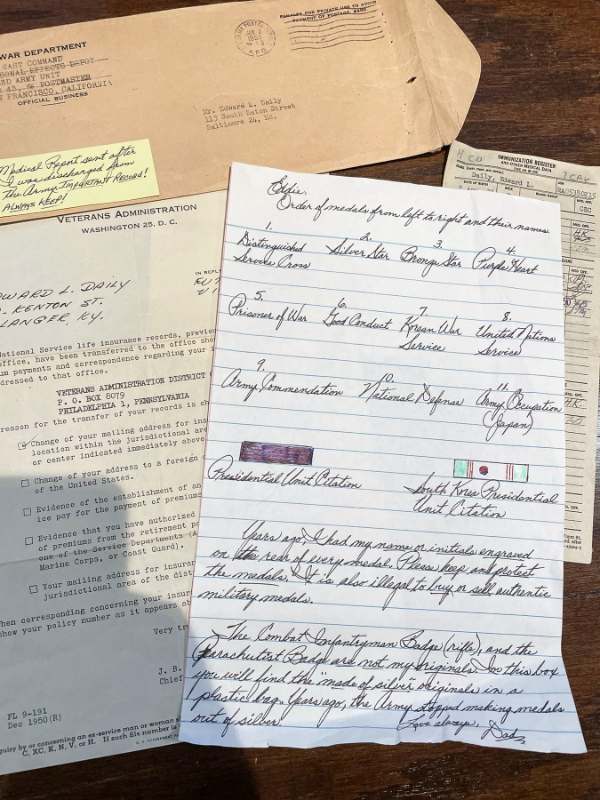 PENALTY FOR PRIVATE USE TO AVOID
PAYMENT OF POSTAGE, $300
WAR DEPARTMENT
EAST COMMAND
EFFECTS DEPOT
ARMY UNIT
POSTMASTER
FRANCISCO, CALIFORNIA
OFFICIAL BUSINESS
Mr. Edward L. Daily
113 South Eaton Street
Baltimore 24, Md.
Medical Report sent after
I was discharged from
the Army. IMPORTANT RECORD!
ALWAYS KEEP!
VETERANS ADMINISTRATION
WASHINGTON 25, D. C.
IN REPLY
WARD L. DAILY
KENTON ST.
LANGER, KY.
National Service life insurance records, previou
office, have been transferred to the office sho
um payments and correspondence regarding your
ddressed to that office.
VETERANS ADMINISTRATION DISTRICT
P. O. BOX 8079
PHILADELPHIA 1, PENNSYLVANIA
reason for the transfer of your records is ch
Change of your mailing address for in
location within the jurisdictional are
or center indicated immediately above
Change of your address to a foreign
of the United States.
Evidence of the establishment of an
ice pay for the payment of premiums
Evidence that you have authorized
of premiums from the retirement p
one of the Service Departments
Marine Corps, or Coast Guard).
Your mailing address for insura
jurisdictional area of the dist
hen corresponding concerning your insur
show your policy number as it appears ab
Very tru
J. B.
Chief
FL 9-191
Dec 1950(R)
quiry by or concerning an ex-service man or woman s
C, XC, K, N, V, or H. If such file number is
IMMUNIZATION REGISTER
AND OTHER MEDICAL DATA
Daily, Edward L.
Elsie:
Order of medals from left to right and their names:
1. Distinguished Service Cross
2. Silver Star
3. Bronze Star
4. Purple Heart
5. Prisoner of War
6. Good Conduct
7 Korean War Service
8. United Nations Service
9. Army Commendation
10. National Defense
11. Army Occupation (Japan)
Presidential Unit Citation
South Korea Presidential
Unit Citation
Years ago, I had my name or initials engraved
on the rear of every medal. Please keep and protect
the medals. It is also illegal to buy or sell authentic
military medals.
The Combat Infantryman Badge (rifle), and the
Parachutist Badge are not my originals. In this box
you will find the "made of silver" originals in a
plastic bag. Years ago, the Army stopped making medals
out of silver.
Love always,
Dad